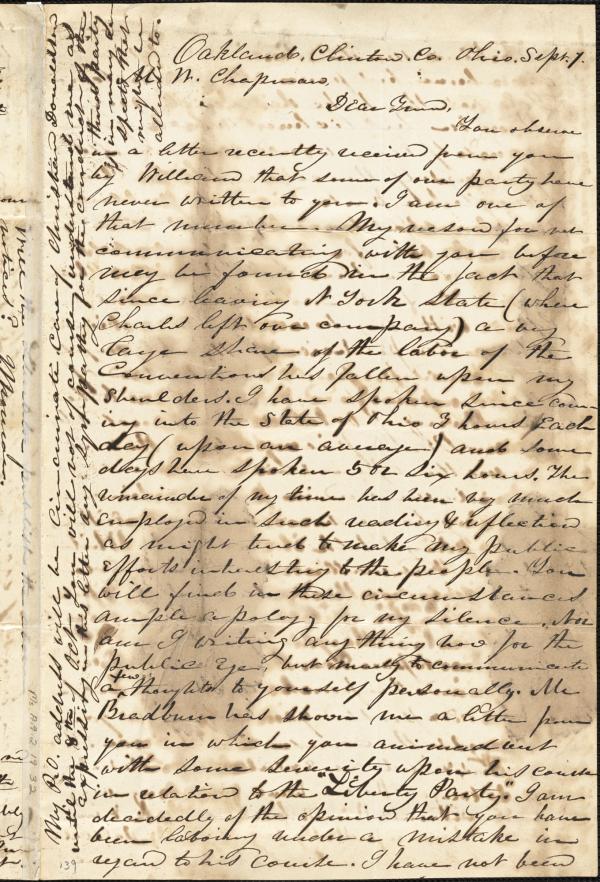 Oakland, Clinton Co. Ohio, Sept. 7.
M. W. Chapman,
Dear Friend,
You observe
in a letter recently received from you
by William that some of our party have
never written to you. I am one of
that number. My reason for not
communicating with you before
may be found in the fact that
since leaving N York State (where
Charles left our company) a very
large share of the labor of the
Conventions has fallen upon my
shoulders. I have spoken since com-
ing into the State of Ohio 3 hours each
day (upon an average) and some
days have spoken 5 or six hours. The
remainder of my time has been very much
employed in such reading & reflection
as might tend to make my public
efforts interesting to the people. You
will find in these circumstances
ample apology for my silence. Nor
am I writing any thing now for the
public eye, but merely to communicate
a few thoughts to yourself personally. Mr
Bradburn has shown me a letter from
you in which you animadvert
with some severity upon his course
in relation to the "Liberty Party". I am
decidedly of the opinion that you have
been laboring under a mistake in
regard to his course. I have not been
My P.O. address will be Cincinnati Care of Christian Donaldson
until the 8th Oct. You will not of course understand me as
in this letter any sympathy for the conduct of the
third party
in any
139